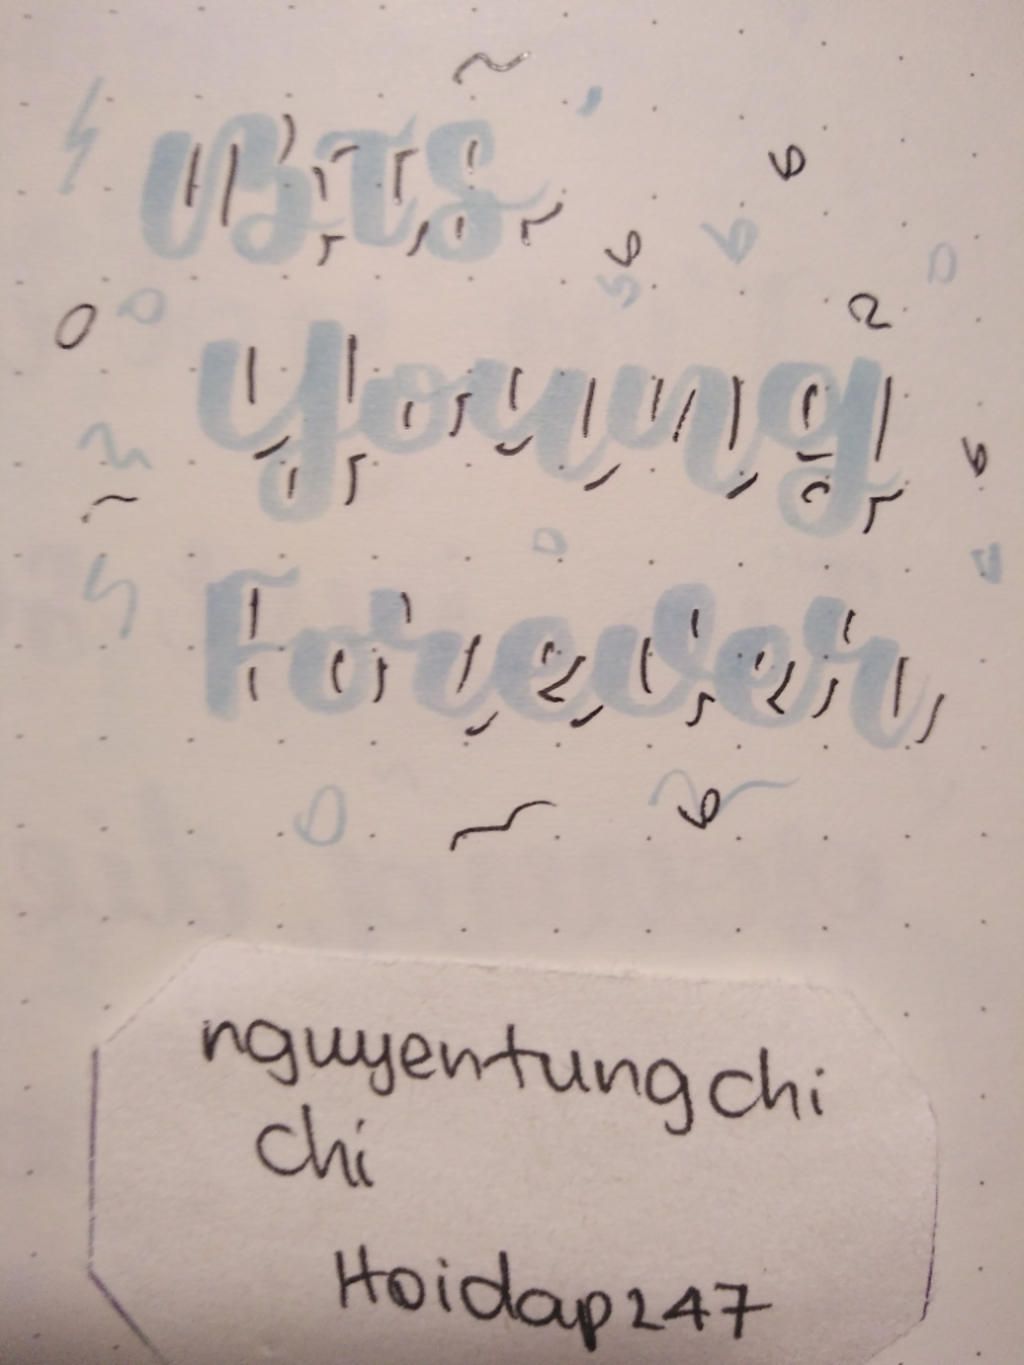 BTS
Young
Forever
nguyentungchi
chi
Hoidap247